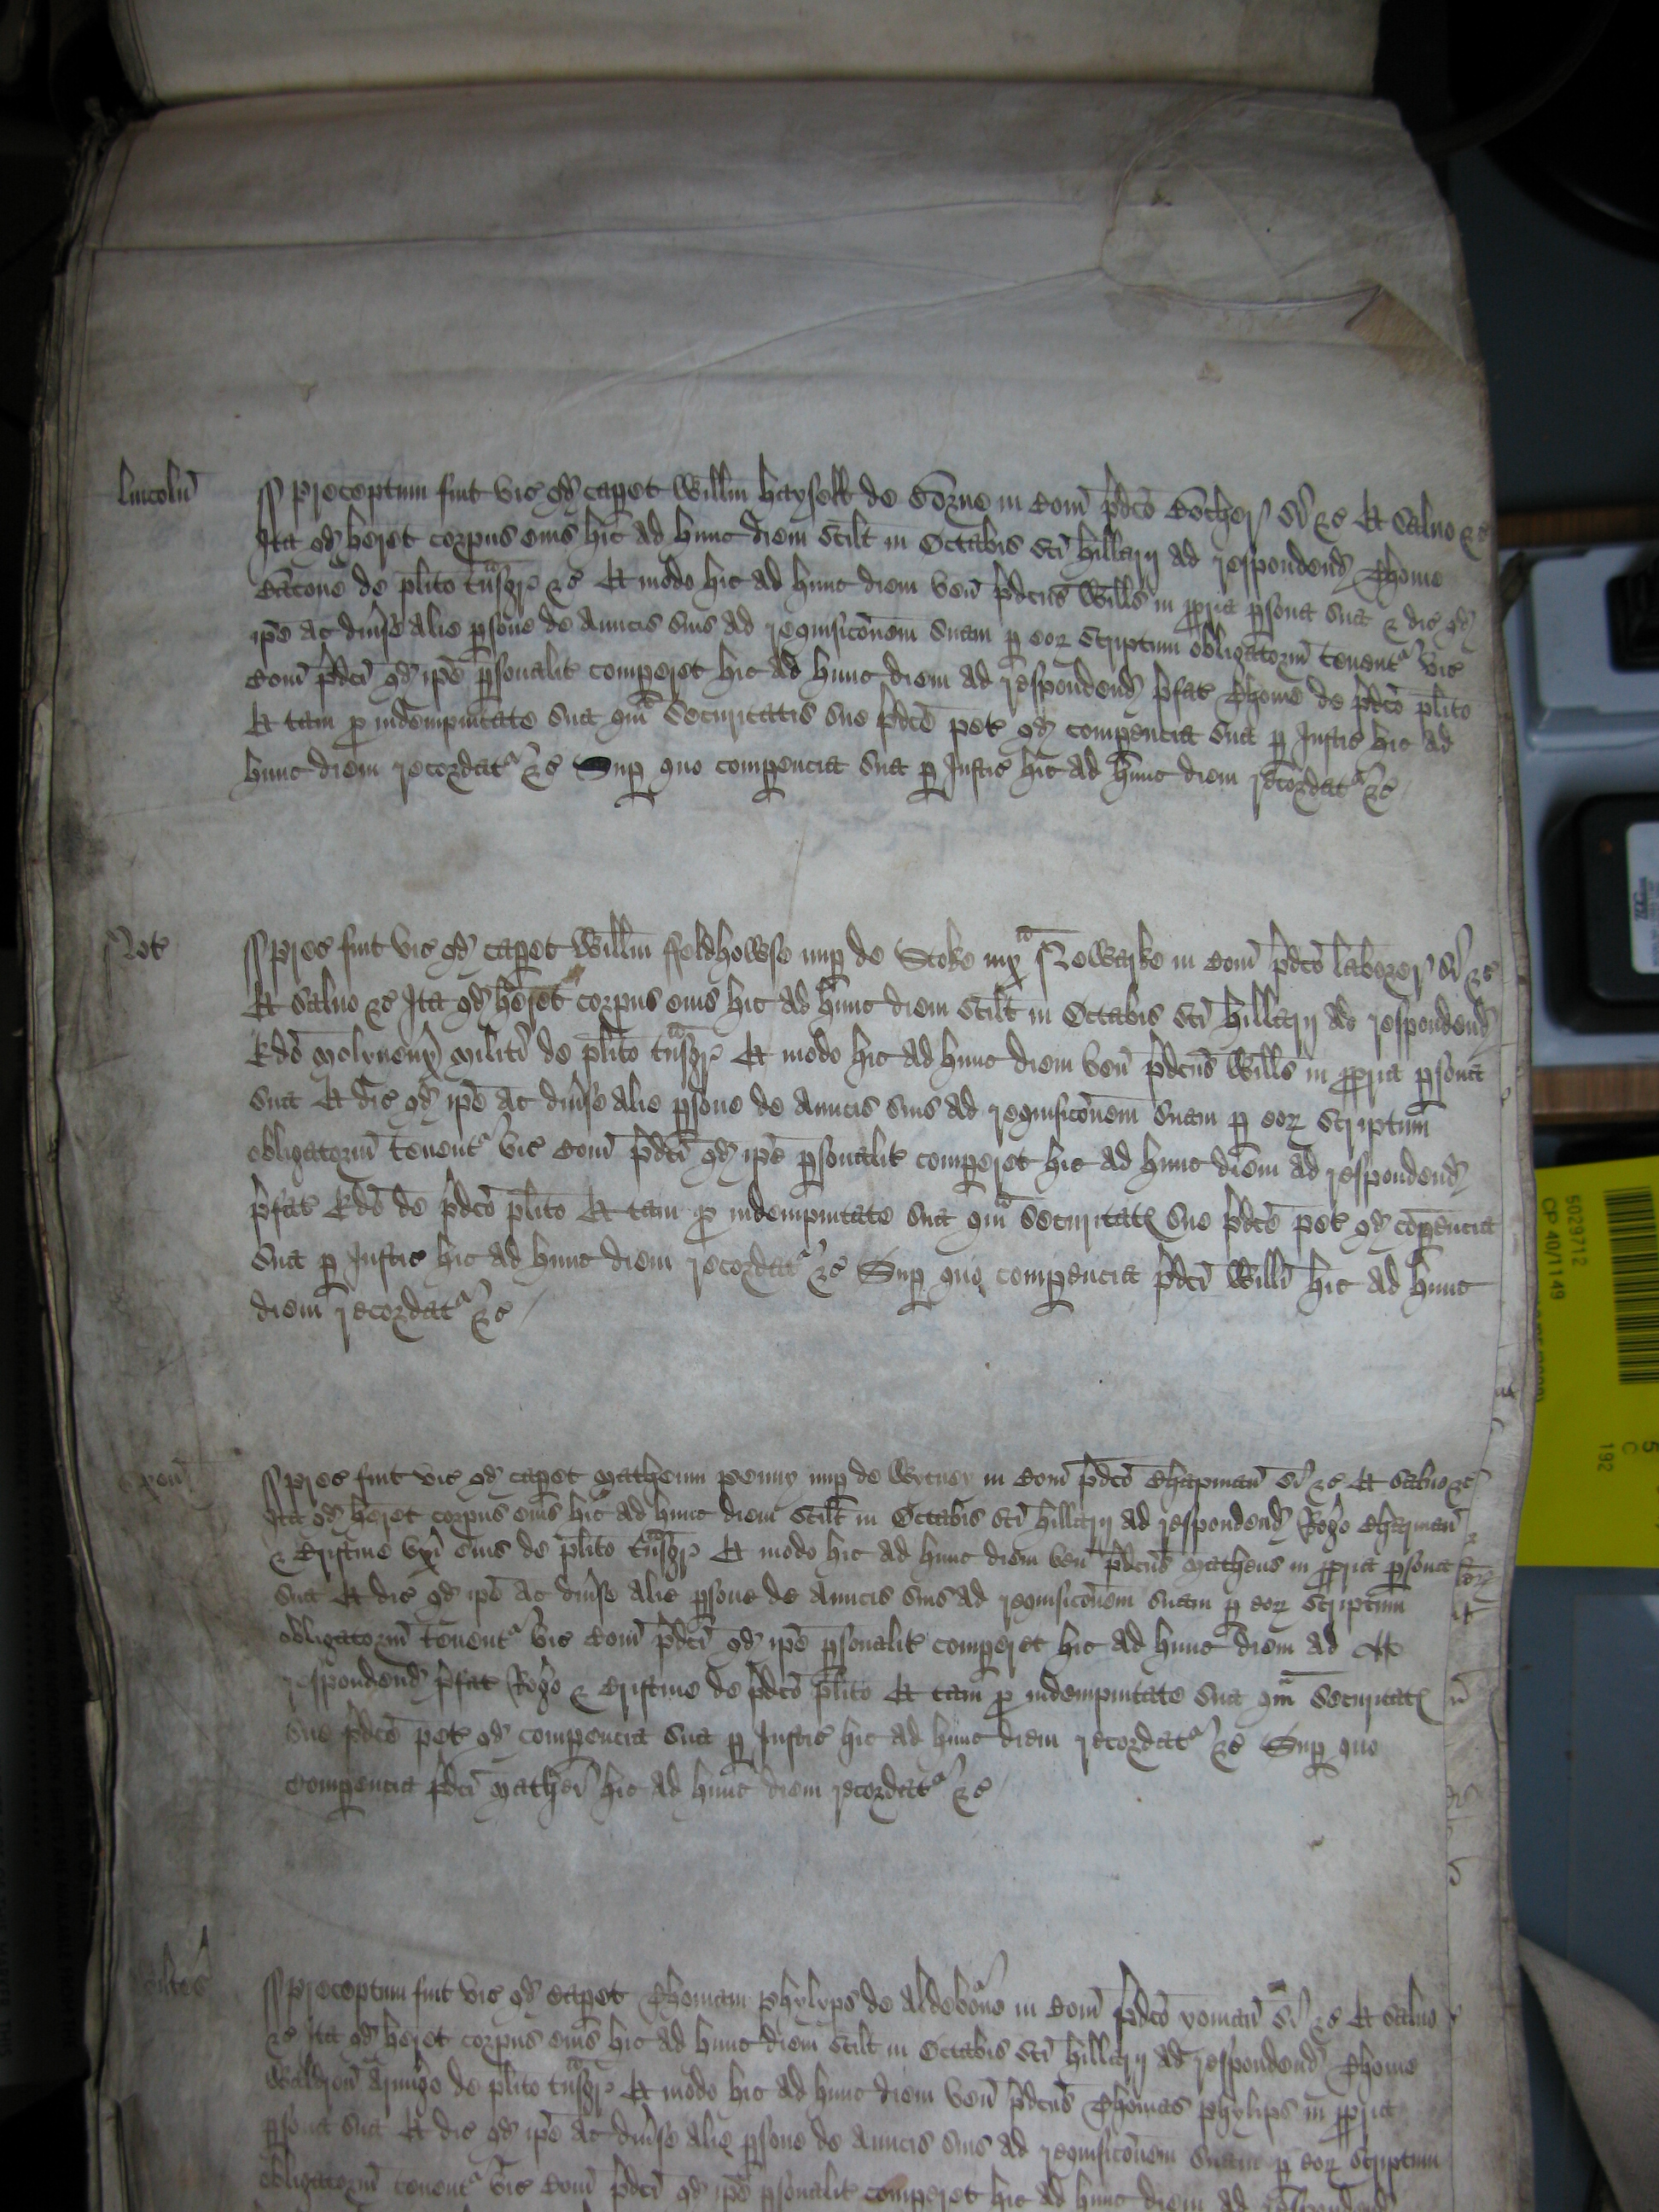 lincoln̄
Preceptum fuit vic̄ qd̄ caperet Willm̄ hayself de Corne in Com̄ p̄dc̄o Bocher sī &c Et Salvo &c
Ita qd̄ heret corpus eius hic ad hunc diem Scilt in Octabis Sc̄i Hillarij ad respondend̄ Thome
de pl̄ito tn̄sgr̄ &c Et modo hic ad hunc diem ven̄ p̄dcus Will̄s in ppria p̄sona sua & dic̄ qd̄
ip̄e ac diu̔se alie p̄sone de Amicis suis ad requisic̄onem suam p eor̄ Scriptum obligatorm̄ tenent̄ vic̄
Com̄ p̄dc̄i qd̄ ip̄e p̄sonalit̄ comperet hic ad hunc diem ad respondend̄ p̄fat̄ Thome de p̄dc̄o pl̄ito
Et tam p indempnitate sua qm̄ Securitatis sue p̄dc̄e pet̄ qd̄ comparencia sua p Justic̄ hic ad
hunc diem recordat̄ &c Sup quo comparencia sua p Justic̄ hic ad hunc diem recordat̄ &c
Not̄
Prec̄ fuit vic̄ qd̄ caperet Willm̄ Feldhowse nup de Stoke iuxa Newarke in Com̄ p̄dc̄o laborer sī &c
Et Salvo &c Ita qd̄ heret corpus eius hic ad hunc diem Scilt in Octabis Sc̄i Hillarij ad respondend̄
Edō Molynenx Militi de pl̄ito tn̄sgr̄ Et modo hic ad hunc diem ven̄ p̄dcus Will̄s in ppria p̄sona
sua Et dic̄ qd̄ ip̄e ac diu̔se alie p̄sone de Amicis suis ad requisic̄onem suam p eor̄ Scriptum
obligatorm̄ tenent̄ vic̄ Com̄ p̄dc̄i qd̄ ip̄e p̄sonalit̄ comperet hic ad hunc diem ad respondend̄
p̄fat̄ Edō de p̄dc̄o pl̄ito Et tam p indempnitate sua qm̄ Securitat̄ sue p̄dc̄e pet̄ qd̄ cōparencia
sua p Justic̄ hic ad hunc diem recordat̄ &c Sup quo comparencia p̄dc̄i Will̄i hic ad hunc
diem recordat̄ &c
Prec̄ fuit vic̄ qd̄ caperet Matheum Penny nup de Wytney in Com̄ p̄dc̄o Chapman̄ sī &c Et Salvo &c
Ita qd̄ heret corpus eius hic ad hunc diem Scilt in Octabis Sc̄i Hillarij ad respondend̄ Rogō
& Cristine vxi eius de pl̄ito tn̄sgr̄ Et modo hic ad hunc diem ven̄ p̄dcus Matheus in ppria p̄sona
sua Et dic̄ qd̄ ip̄e ac diu̔se alie p̄sone de Amicis suis ad requisic̄onem suam p eor̄ Scriptum
obligatorm̄ tenent̄ vic̄ Com̄ p̄dc̄i qd̄ ip̄e p̄sonalit̄ comperet hic ad hunc diem ad
respondend̄ p̄fat̄ Rogō & Cristine de p̄dc̄o pl̄ito Et tam p indempnitate sua qm̄ Securitat̄
sue p̄dc̄e pet̄ qd̄ comparencia sua p Justic̄ hic ad hunc diem recordat̄ &c Sup quo
Comparencia p̄dc̄i Mathei hic ad hunc diem recordat̄ &c
Preceptum fuit vic̄ qd̄ caperet Thomam Phylyps de Aldebōne in Com̄ p̄dc̄o yoman̄ sī &c Et Salvo
&c Ita qd̄ heret corpus eius hic ad hunc diem Scilt in Octabis Sc̄i Hillarij ad respondend̄ Thome
Waldron̄ Armigō de pl̄ito tn̄sgr̄ Et modo hic ad hunc diem ven̄ p̄dcus Thomas Phylips in ppria
p̄sona sua Et dic̄ qd̄ ip̄e ac diu̔se alie p̄sone de Amicis suis ad requisic̄onem suam p eor̄ Scriptum
obligatorm̄ tenent̄ vic̄ Com̄ p̄dc̄i qd̄ ip̄e p̄sonalit̄ comperet hic ad hunc diem ad respondend̄
5029712
CP 40/1149
192